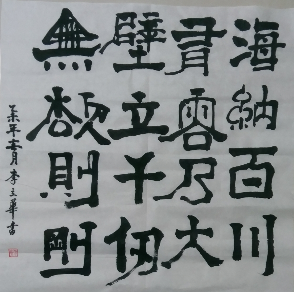 海納百川
有容乃大
壁立千仞
無欲則剛
年 月 李立華書